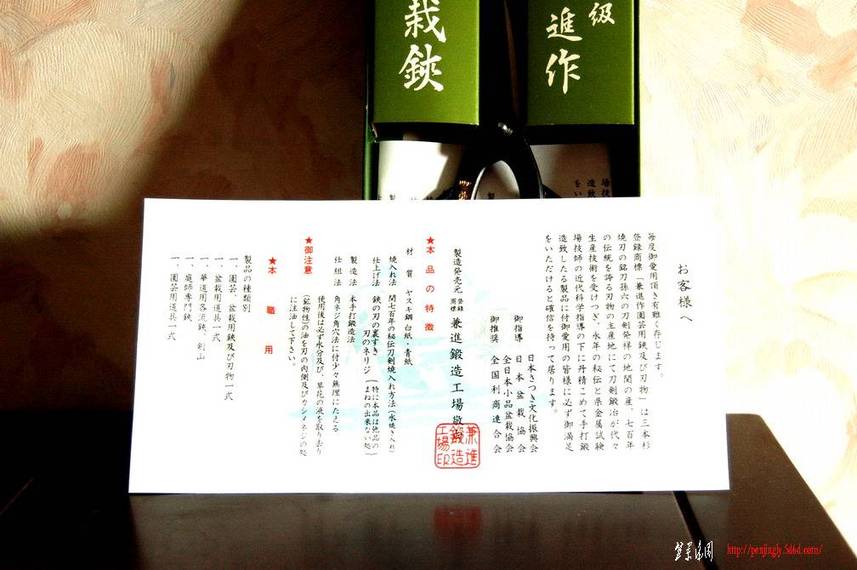 栽鋏
級
進作
お客様へ
毎度御愛用頂き有難く存じます。
登録商標「兼進作園芸用鋏及び刃物」は三本杉
焼刃の銘刀孫六の刀剣発祥の地関の産、七百年
の伝統を誇る刃物の主産地にて刀剣鍛冶が代々
生産技術を受けつぎ、永年の秘伝と県金属試験
場技師の近代科学指導の下に丹精こめて手打鍛
造致したる製品に付御愛用の皆様に必ず御満足
をいただけると確信を持って居ります。
日本さつき文化振興会
御指導 日本盆栽協会
全日本小品盆栽協会
御推奨 全国利商連合会
製造発売元 登録商標 兼進鍛造工場敬
兼進鍛造工場印
★本品の特徴
材質 ヤスキ鋼白紙・青紙
焼入れ法 関七百年の秘伝刀剣焼入れ方法(水焼き入れ)
仕上げ法 鋏の刃の裏すき
刃のネジリ (特に本品は他品のまねの出来ない処)
製造法 本手打鍛造法
仕組法 角ネジ角穴法に付少々無理にたえる
★御注意
使用後は必ず水分及び、草花の液を取り去り
(鉱物性)の油を刃の内側及びカシメネジの処
に注油して下さい。
★本職用
製品の種類別
一、園芸、盆栽用鋏及び刃物一式
一、盆栽用道具一式
一、華道用各流鋏、剣山
一、庭師専門鋏、
一、園芸用道具一式
http://penjingly.5d6d.com/